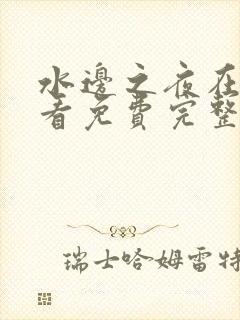 水邊之夜在
看免費完整
瑞士哈姆雷特